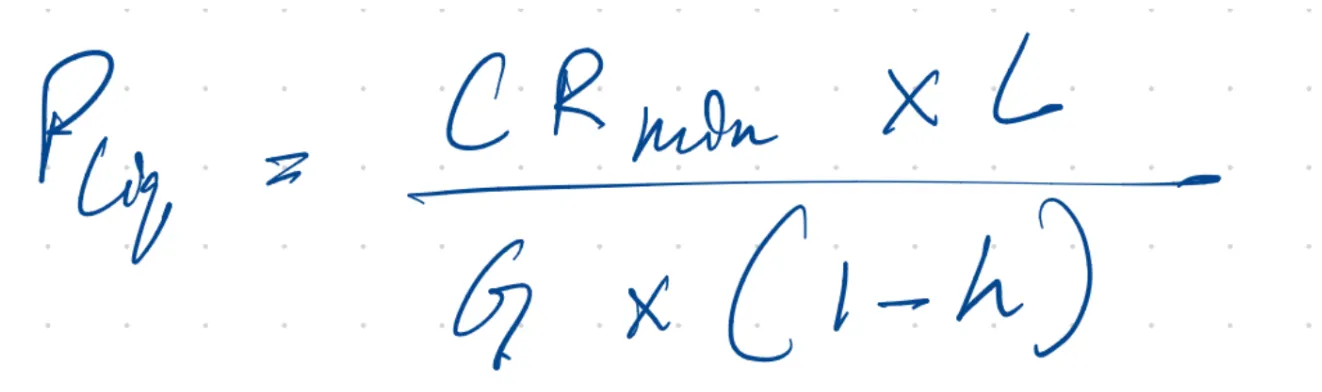 P_Liq = (CR_min × L) / (G × (1-h))